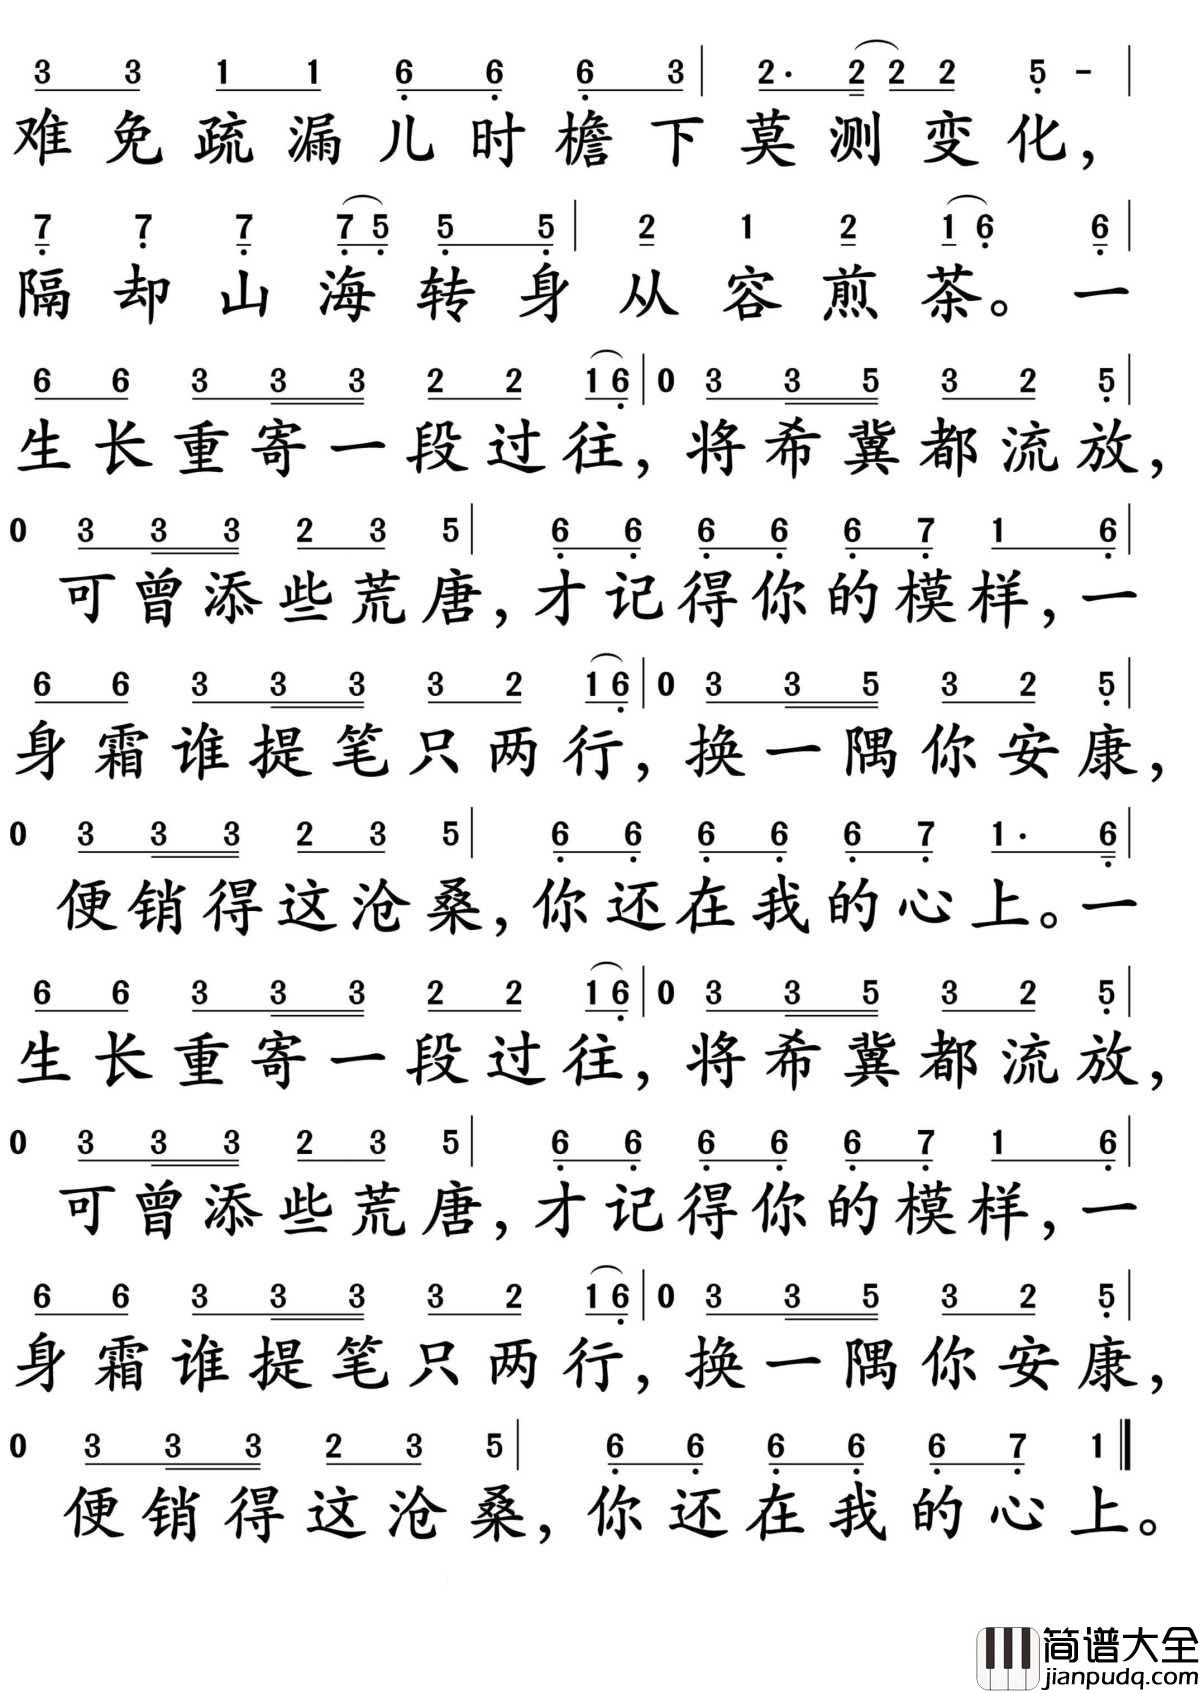 3 3 1 1 6 6 6 3 | 2· 2 2 2 5 - |
难免疏漏儿时檐下莫测变化，
7 7 7 7 5 5 5 | 2 1 2 1 6 6 |
隔却山海转身从容煎茶。一
6 6 3 3 3 2 2 1 6 | 0 3 3 5 3 2 5 |
生长重寄一段过往，将希冀都流放，
0 3 3 3 2 3 5 | 6 6 6 6 6 7 1 6 |
可曾添些荒唐，才记得你的模样，一
6 6 3 3 3 3 2 1 6 | 0 3 3 5 3 2 5 |
身霜谁提笔只两行，换一隅你安康，
0 3 3 3 2 3 5 | 6 6 6 6 6 7 1· 6 |
便销得这沧桑，你还在我的心上。一
6 6 3 3 3 2 2 1 6 | 0 3 3 5 3 2 5 |
生长重寄一段过往，将希冀都流放，
0 3 3 3 2 3 5 | 6 6 6 6 6 7 1 6 |
可曾添些荒唐，才记得你的模样，一
6 6 3 3 3 3 2 1 6 | 0 3 3 5 3 2 5 |
身霜谁提笔只两行，换一隅你安康，
0 3 3 3 2 3 5 | 6 6 6 6 6 7 1 ‖
便销得这沧桑，你还在我的心上。
简谱大全
jianpudq.com